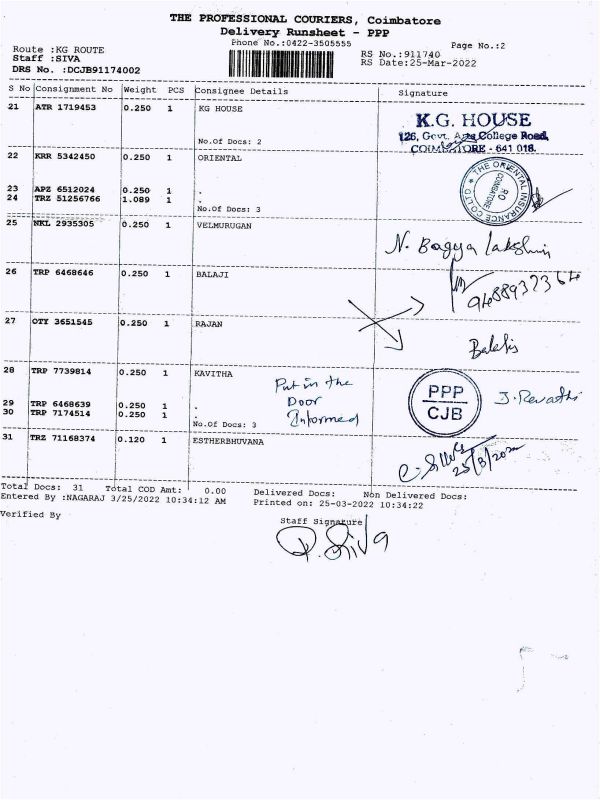 THE PROFESSIONAL COURIERS, Coimbatore
Delivery Runsheet - PPP
Phone No.:0422-3505555
Page No.:2
Route :KG ROUTE
RS No.:911740
Staff :SIVA
RS Date:25-Mar-2022
DRS No. :DCJB91174002
S No Consignment No Weight PCS Consignee Details Signature
21 ATR 1719453 0.250 1 KG HOUSE
No.Of Docs: 2
K.G. HOUSE
126, Govt. Arts College Road,
COIMBATORE - 641 018.
22 KRR 5342450 0.250 1 ORIENTAL
23 APZ 6512024 0.250 1 .
24 TRZ 51256766 1.089 1 .
No.Of Docs: 3
THE ORIENTAL INSURANCE CO. LTD.
RO
COIMBATORE
25 NKL 2935305 0.250 1 VELMURUGAN
N. Bagya lakshmi
26 TRP 6468646 0.250 1 BALAJI
27 OTY 3651545 0.250 1 RAJAN
Balaji
28 TRP 7739814 0.250 1 KAVITHA
Put in the
Door
Informed
PPP
CJB
J. Revathi
29 TRP 6468639 0.250 1 .
30 TRP 7174514 0.250 1 .
No.Of Docs: 3
31 TRZ 71168374 0.120 1 ESTHERBHUVANA
25/3/2022
Total Docs: 31 Total COD Amt: 0.00 Delivered Docs: Non Delivered Docs:
Entered By :NAGARAJ 3/25/2022 10:34:12 AM Printed on: 25-03-2022 10:34:22
Verified By
Staff Signature
P. Siva